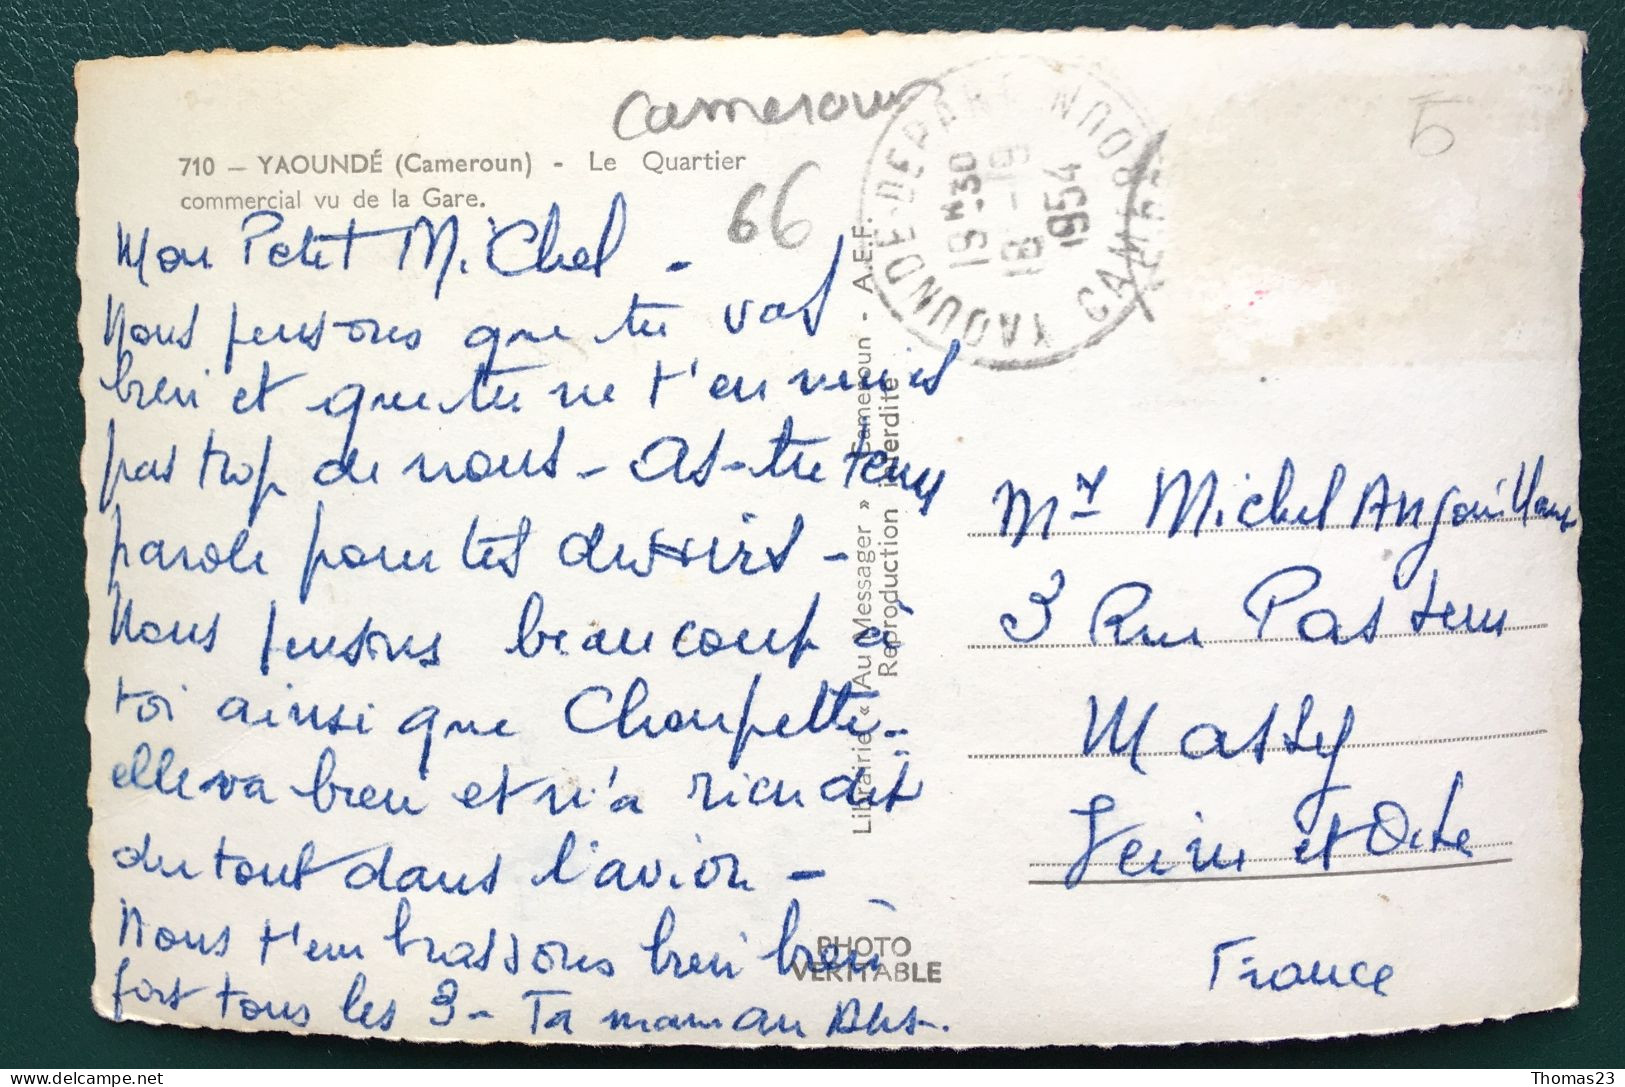 Cameroun
5
710 – YAOUNDÉ (Cameroun) - Le Quartier
commercial vu de la Gare.
66
YAOUNDE-DEPART
CAMEROUN
19H30
18 -19
1954
Mon Petit Michel -
Nous pensons que tu vas
bien et que tu ne t'ennuies
pas trop de nous - As-tu tenu
parole pour tes
Nous pensons beaucoup à
toi ainsi que Choupette -
elle va bien et n'a rien dit
du tout dans l'avion -
Nous t'embrassons bien bien
fort tous les 3 - Ta maman
Librairie « Au Messager » Cameroun - A.E.F.
Reproduction interdite
PHOTO
VERITABLE
Mr Michel
3 Rue Pasteur
Massy
Seine et Oise
France
delcampe.net
Thomas23